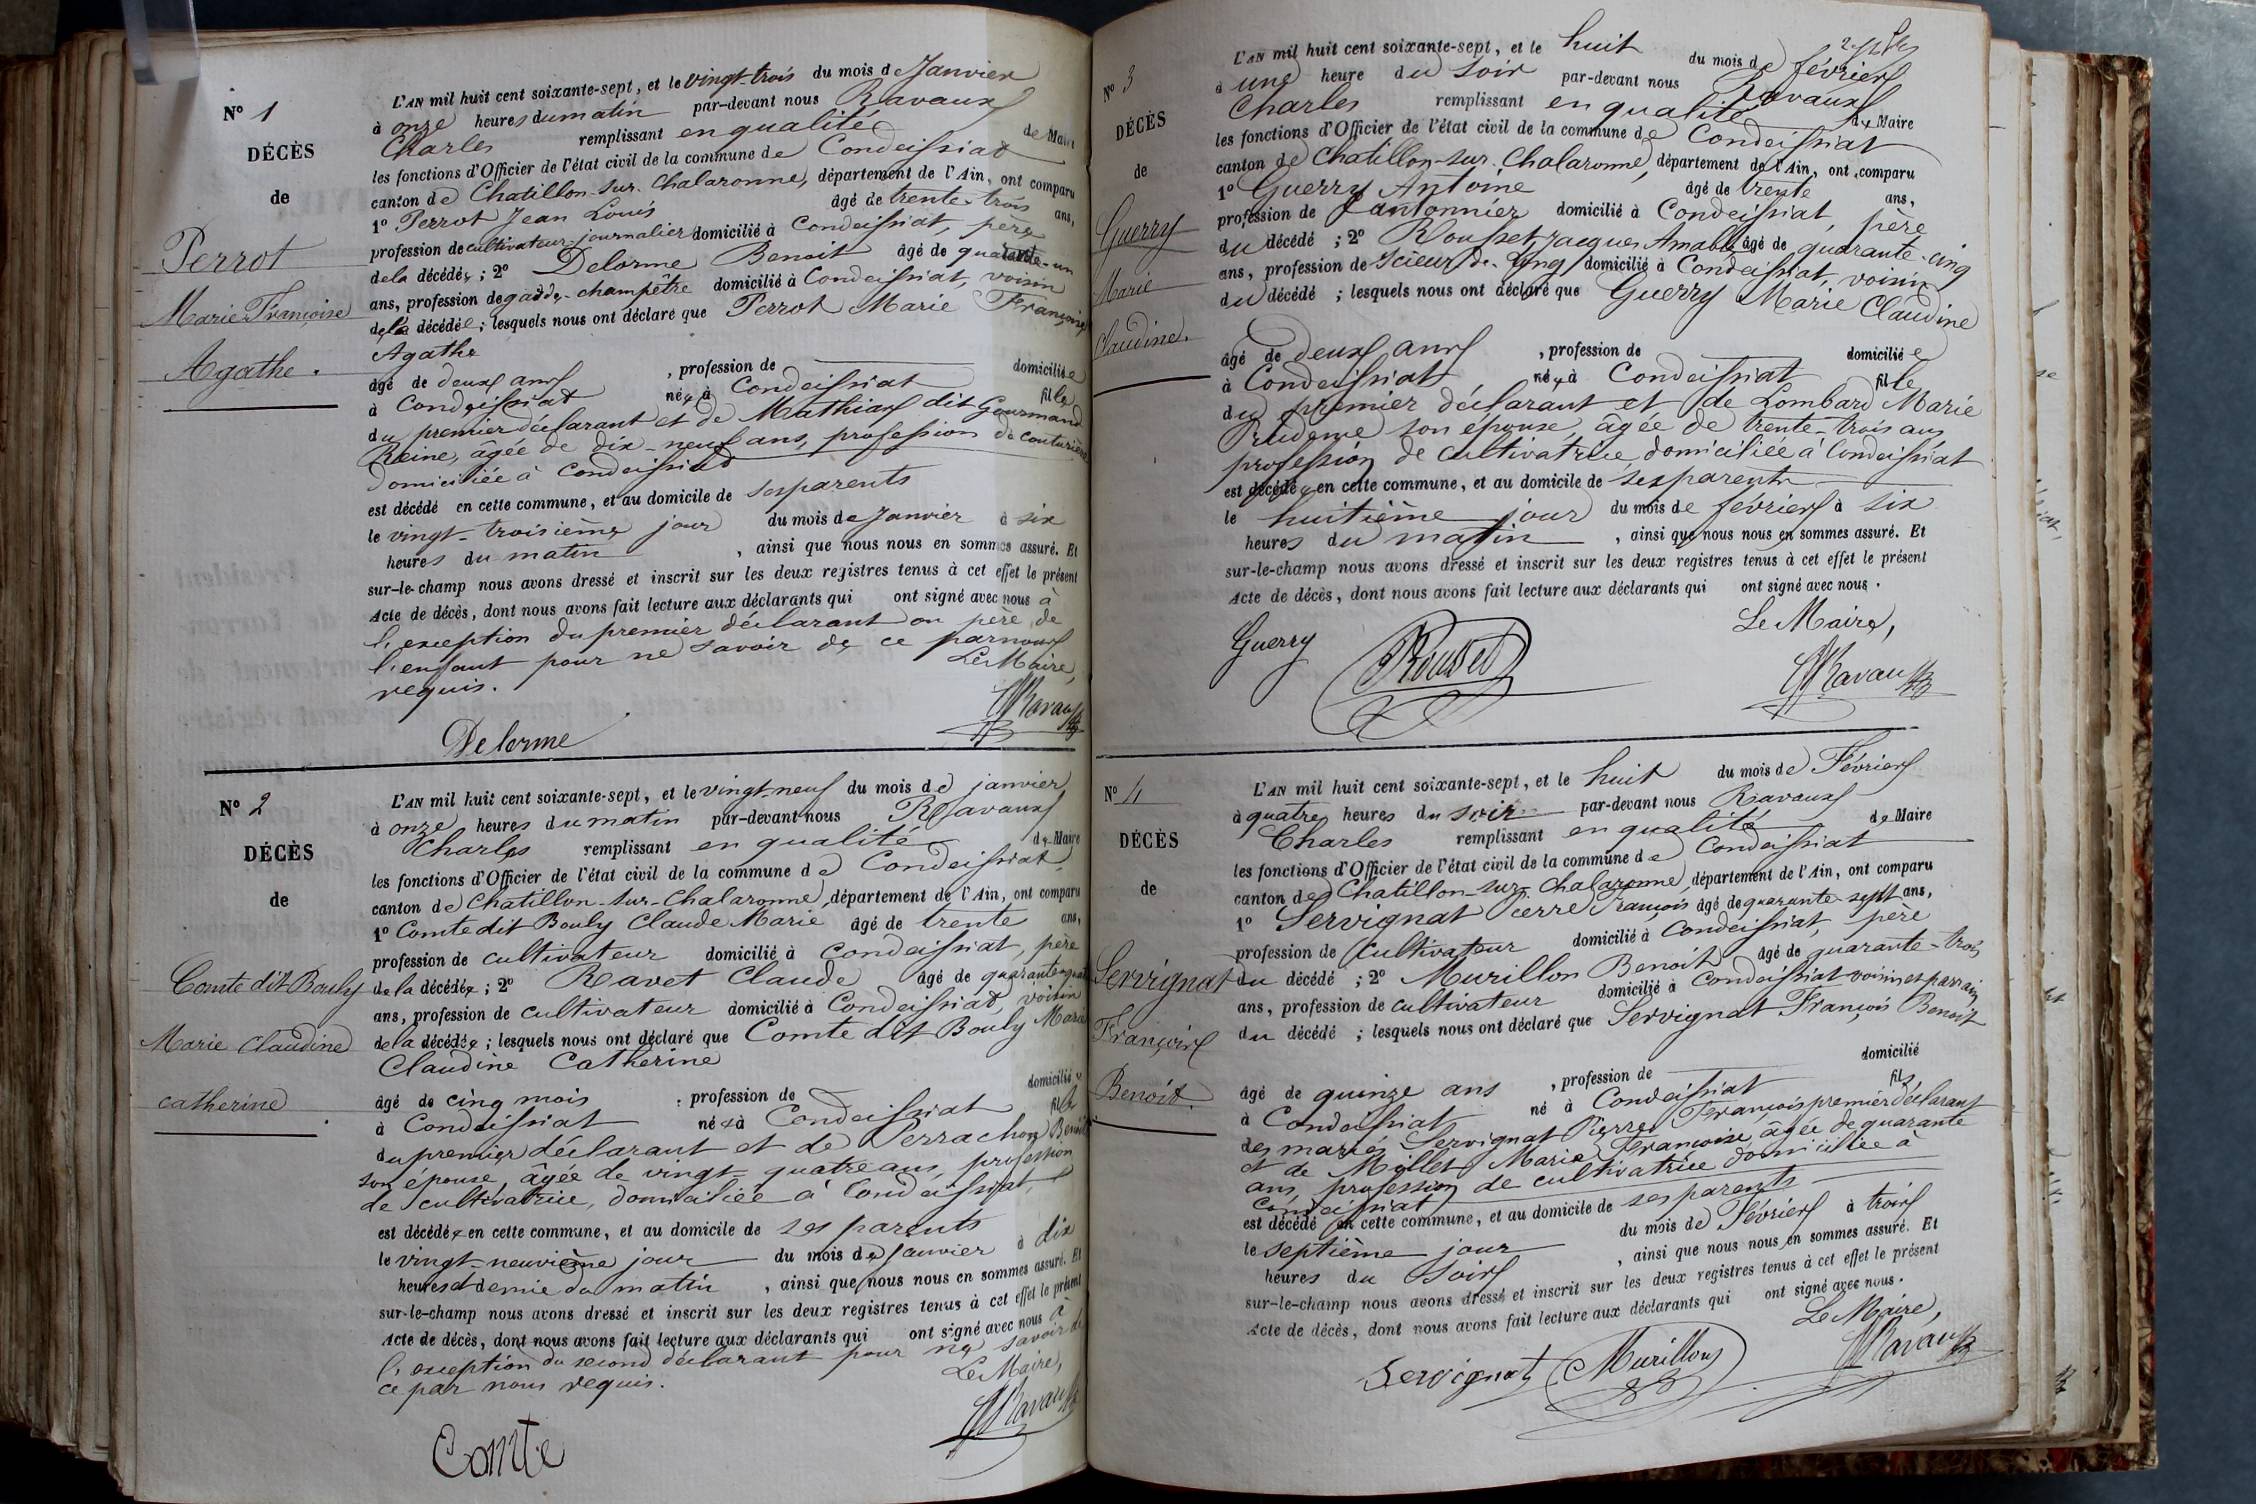 N° 1
DÉCÈS
de
Perrot
Marie Françoise
Agathe.
L'AN mil huit cent soixante-sept, et le vingt-trois du mois de Janvier
à onze heures du matin par-devant nous Ravaux
Charles remplissant en qualité de Maire
les fonctions d'Officier de l'état civil de la commune de Condeissiat
canton de Chatillon-sur-Chalaronne, département de l'Ain, ont comparu
1° Perrot Jean Louis âgé de trente-trois ans,
profession de cultivateur-journalier domicilié à Condeissiat, père
de la décédée ; 2° Delorme Benoit âgé de quarante-un
ans, profession de garde-champêtre domicilié à Condeissiat, voisin
de la décédée ; lesquels nous ont déclaré que Perrot Marie Françoise
Agathe
âgé de deux ans , profession de domiciliée
à Condeissiat née à Condeissiat fille
du premier déclarant et de Mathias dit Gourmand
Reine, âgée de dix-neuf ans, profession de couturière
domiciliée à Condeissiat
est décédé en cette commune, et au domicile de ses parents
le vingt-troisième jour du mois de Janvier à six
heures du matin , ainsi que nous nous en sommes assuré. Et
sur-le-champ nous avons dressé et inscrit sur les deux registres tenus à cet effet le présent
Acte de décès, dont nous avons fait lecture aux déclarants qui ont signé avec nous à
l'exception du premier déclarant ou père de
l'enfant pour ne savoir de ce par nous
requis. Le Maire,
Delorme Ravaux
N° 2
DÉCÈS
de
Comte dit Bouly
Marie Claudine
catherine
L'AN mil huit cent soixante-sept, et le vingt-neuf du mois de janvier
à onze heures du matin par-devant nous Ravaux
Charles remplissant en qualité de Maire
les fonctions d'Officier de l'état civil de la commune de Condeissiat
canton de Chatillon-sur-Chalaronne, département de l'Ain, ont comparu
1° Comte dit Bouly Claude Marie âgé de trente ans,
profession de cultivateur domicilié à Condeissiat, père
de la décédée ; 2° Ravet Claude âgé de quarante
ans, profession de cultivateur domicilié à Condeissiat, voisin
de la décédée ; lesquels nous ont déclaré que Comte dit Bouly Marie
Claudine Catherine
âgé de cinq mois , profession de domicilié
à Condeissiat née à Condeissiat fille
du premier déclarant et de Perrachon Benoite
son épouse, âgée de vingt-quatre ans, profession
de cultivatrice, domiciliée à Condeissiat
est décédée en cette commune, et au domicile de ses parents
le vingt-neuvième jour du mois de janvier à dix
heures et demie du matin , ainsi que nous nous en sommes assuré. Et
sur-le-champ nous avons dressé et inscrit sur les deux registres tenus à cet effet le présent
Acte de décès, dont nous avons fait lecture aux déclarants qui ont signé avec nous à
l'exception du second déclarant pour ne savoir de
ce par nous requis. Le Maire,
Comte Ravaux
N° 3
DÉCÈS
de
Guerry
Marie
Claudine.
L'AN mil huit cent soixante-sept, et le huit du mois de février
à une heure du soir par-devant nous Ravaux
Charles remplissant en qualité de Maire
les fonctions d'Officier de l'état civil de la commune de Condeissiat
canton de Chatillon-sur-Chalaronne, département de l'Ain, ont comparu
1° Guerry Antoine âgé de trente ans,
profession de Cantonnier domicilié à Condeissiat, père
du décédé ; 2° Rousset Jacques Amable âgé de quarante-cinq
ans, profession de scieur de long domicilié à Condeissiat, voisin
du décédé ; lesquels nous ont déclaré que Guerry Marie Claudine
âgé de deux ans , profession de domiciliée
à Condeissiat née à Condeissiat fille
du premier déclarant et de Lombard Marie
Prudence son épouse, âgée de trente-trois ans
profession de cultivatrice domiciliée à Condeissiat
est décédé en cette commune, et au domicile de ses parents
le huitième jour du mois de février à six
heures du matin , ainsi que nous nous en sommes assuré. Et
sur-le-champ nous avons dressé et inscrit sur les deux registres tenus à cet effet le présent
Acte de décès, dont nous avons fait lecture aux déclarants qui ont signé avec nous.
Le Maire,
Guerry Rousset Ravaux
N° 4
DÉCÈS
de
Servignat
François
Benoit.
L'AN mil huit cent soixante-sept, et le huit du mois de Février
à quatre heures du soir par-devant nous Ravaux
Charles remplissant en qualité de Maire
les fonctions d'Officier de l'état civil de la commune de Condeissiat
canton de Chatillon-sur-Chalaronne, département de l'Ain, ont comparu
1° Servignat Pierre François âgé de quarante-sept ans,
profession de Cultivateur domicilié à Condeissiat, père
du décédé ; 2° Murillon Benoit âgé de quarante-trois
ans, profession de cultivateur domicilié à Condeissiat voisin et parrain
du décédé ; lesquels nous ont déclaré que Servignat François Benoit
âgé de quinze ans , profession de domicilié
à Condeissiat né à Condeissiat fils
des mariés Servignat Pierre François premier déclarant
et de Millet Marie Françoise, âgée de quarante
ans, profession de cultivatrice domiciliée à
Condeissiat
est décédé en cette commune, et au domicile de ses parents
le septième jour du mois de Février à trois
heures du soir , ainsi que nous nous en sommes assuré. Et
sur-le-champ nous avons dressé et inscrit sur les deux registres tenus à cet effet le présent
Acte de décès, dont nous avons fait lecture aux déclarants qui ont signé avec nous.
Le Maire,
Servignat Murillon Ravaux